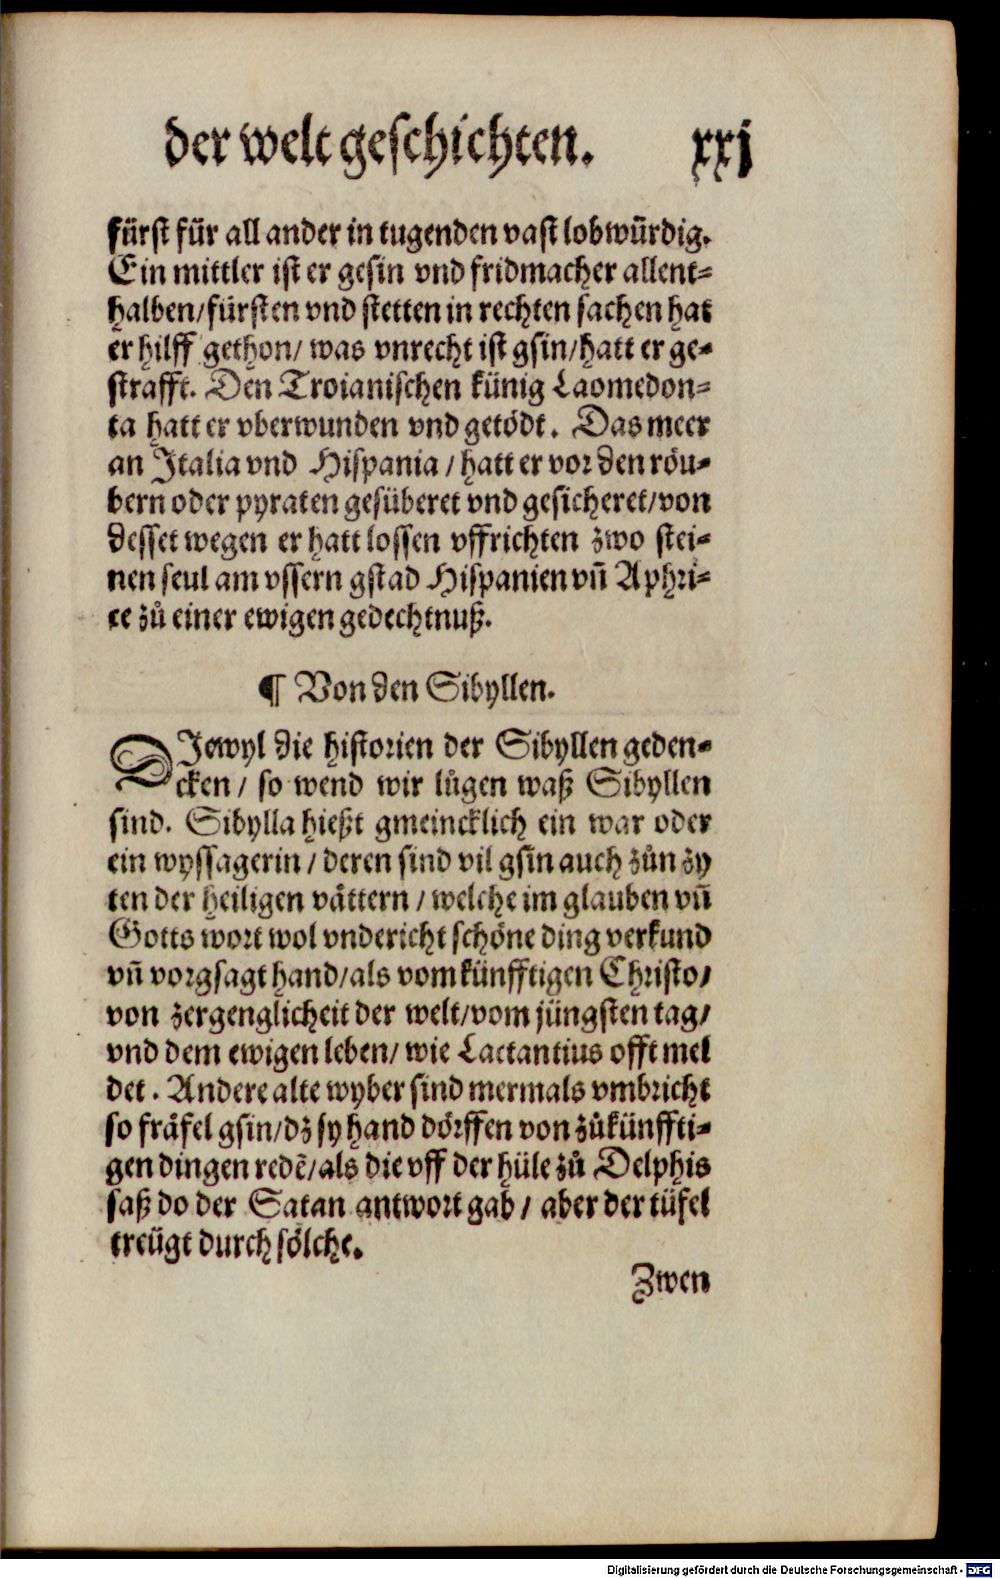 der welt geschichten. xxj
fürst für all ander in tugenden vast lobwürdig.
Ein mittler ist er gesin vnd fridmacher allent-
halben/fürsten vnd stetten in rechten sachen hat
er hilff gethon/ was vnrecht ist gsin/hatt er ge-
strafft. Den Troianischen künig Laomedon-
ta hatt er vberwunden vnd getödt. Das meer
an Italia vnd Hispania / hatt er vor den röu-
bern oder pyraten gesüberet vnd gesicheret/von
desset wegen er hatt lossen vffrichten zwo stei-
nen seul am vssern gstad Hispanien vñ Aphri-
ce zů einer ewigen gedechtnuß.
¶ Von den Sibyllen.
DJewyl die historien der Sibyllen geden-
cken / so wend wir lůgen waß Sibyllen
sind. Sibylla hießt gmeincklich ein war oder
ein wyssagerin / deren sind vil gsin auch zůn zy
ten der heiligen vättern / welche im glauben vñ
Gotts wort wol vndericht schöne ding verkund
vñ vorgsagt hand/als vom künfftigen Christo/
von zergenglicheit der welt/vom jüngsten tag/
vnd dem ewigen leben/ wie Lactantius offt mel
det. Andere alte wyber sind mermals vmbricht
so fräfel gsin/dz sy hand dörffen von zůkünffti-
gen dingen redẽ/als die vff der hüle zů Delphis
saß do der Satan antwort gab / aber der tüfel
treügt durch sölche.
Zwen
Digitalisierung gefördert durch die Deutsche Forschungsgemeinschaft - DFG